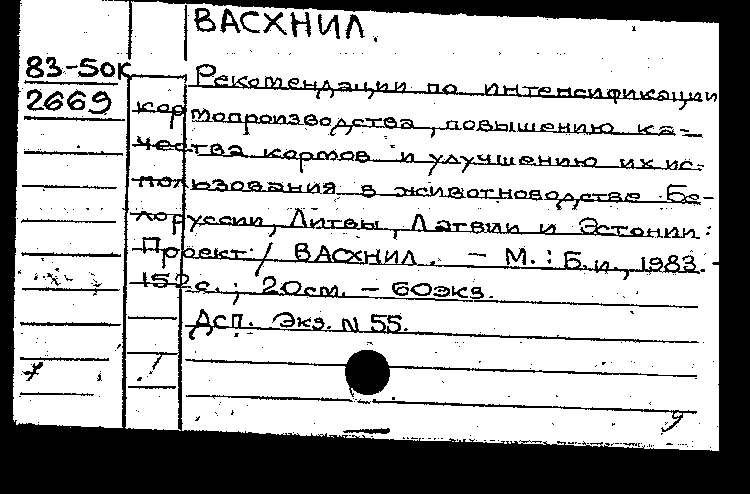 ВАСХНИЛ.
83-50к
2669
Рекомендации по интенсификации
кормопроизводства, повышению ка-
чества кормов и улучшению их ис-
пользования в животноводстве Бе-
лоруссии, Литвы, Латвии и Эстонии:
Проект / ВАСХНИЛ. - М.: Б.и., 1983. -
152 с.; 20см. - 60экз.
Дсп. Экз. N 55.